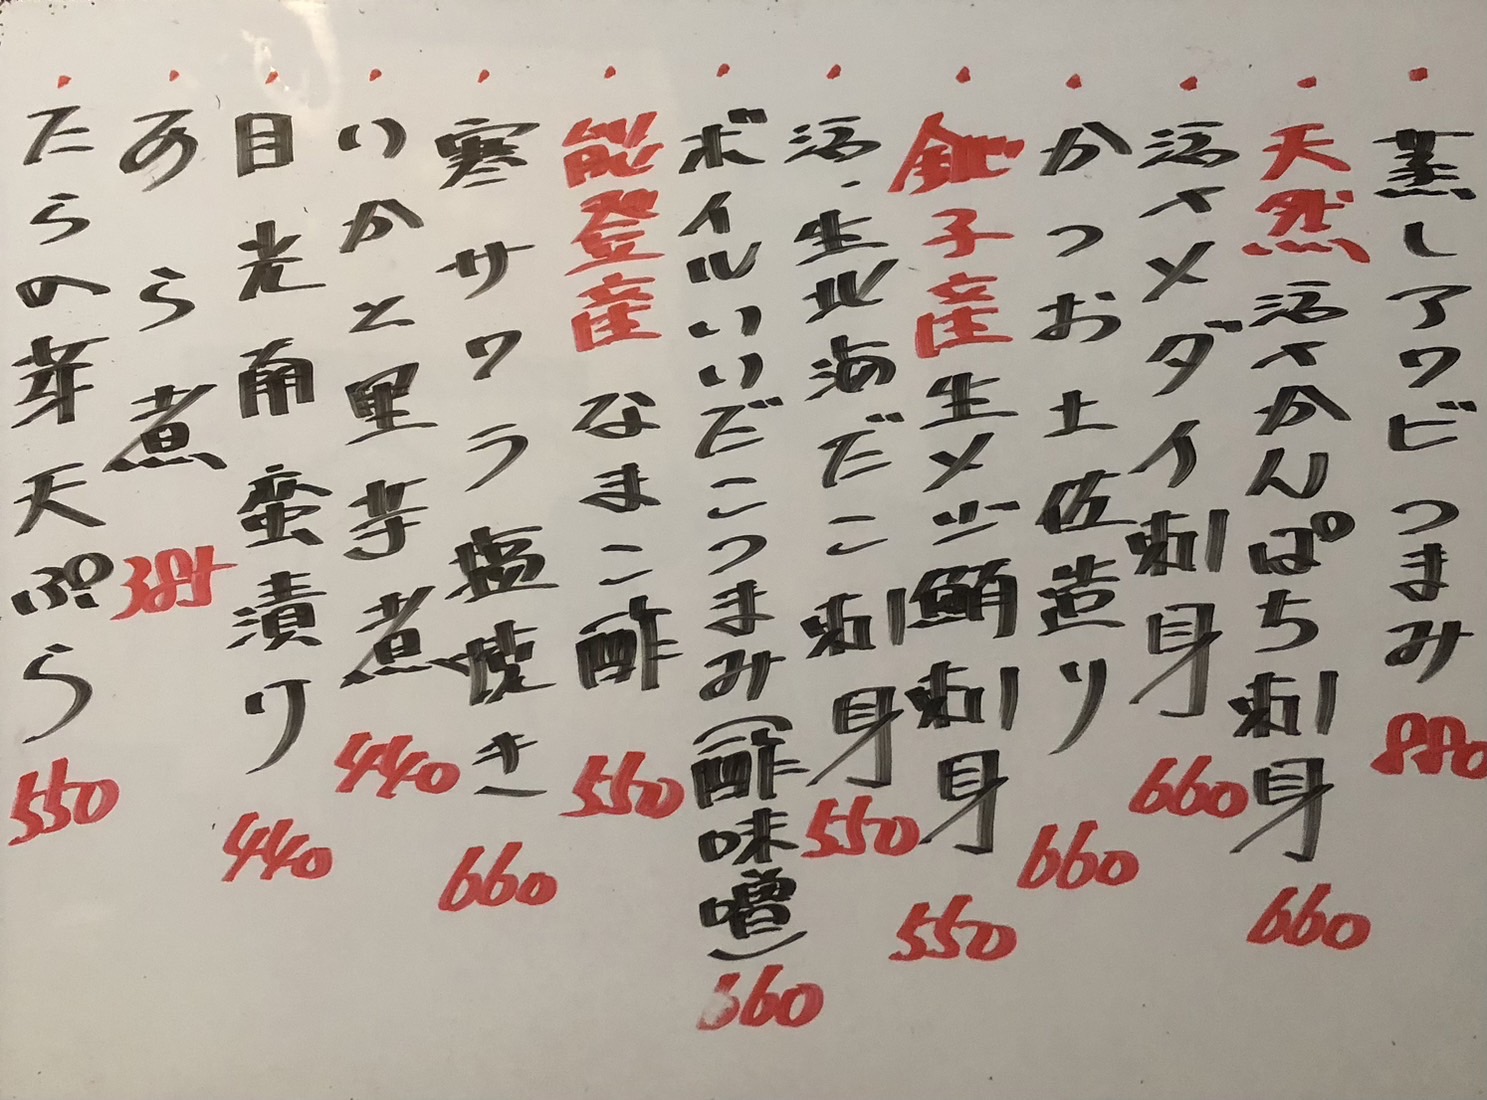 蒸しアワビつまみ 880
天然活〆かんぱち刺身 660
活〆メダイ刺身 660
かつお土佐造り 660
銚子産生メジ鮪刺身 550
活・生北海だこ刺身 550
ボイルいいだこつまみ(酢味噌)
能登産なまこ酢 550
寒サワラ塩焼き 660
いかと里芋煮 440
目光南蛮漬け 440
あら煮 385
たらの芽天ぷら 550